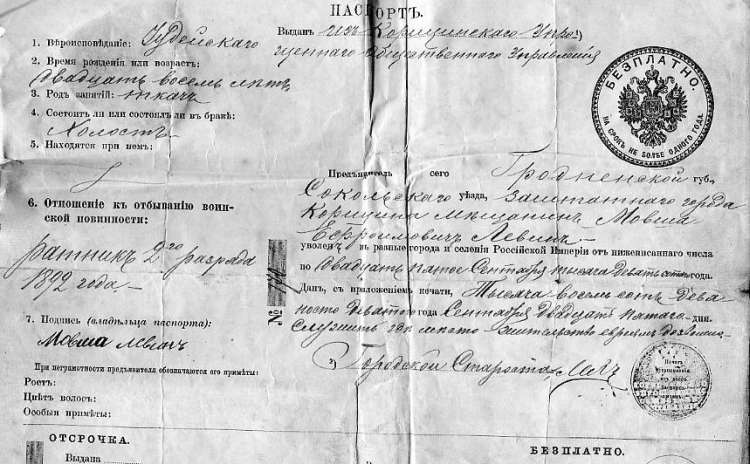 ПАСПОРТЪ.
1. Вѣроисповѣданіе: Іудейскаго
2. Время рожденія или возрастъ:
двадцать восемь лѣтъ
3. Родъ занятій: ткачъ
4. Состоитъ ли или состоялъ ли въ бракѣ:
Холостъ
5. Находятся при немъ:
6. Отношеніе къ отбыванію воин-
ской повинности:
ратникъ 2го разряда
1892 года
7. Подпись (владѣльца паспорта):
Мовша Левинъ
При неграмотности предъявителя обозначаются его примѣты:
Ростъ:
Цвѣтъ волосъ:
Особыя примѣты:
ОТСРОЧКА.
Выдана
Выданъ изъ Корицинскаго Упро-
щеннаго Общественнаго Управленія
БЕЗПЛАТНО.
НА СРОКЪ НЕ БОЛѢЕ ОДНОГО ГОДА.
Предъявитель сего Гродненской губ.,
Сокольскаго уѣзда, заштатнаго города
Корицина мѣщанинъ Мовша
Ефроимовичъ Левинъ
уволенъ въ разные города и селенія Россійской Имперіи отъ нижеписаннаго числа
по двадцать пятое Сентября тысяча девять сотъ года.
Данъ, съ приложеніемъ печати, Тысяча восемь сотъ Девя-
носто Девятаго года Сентября двадцать пятаго дня.
Служитъ гдѣ жительство евреямъ
№
2) Городской Староста
Печать
БЕЗПЛАТНО.